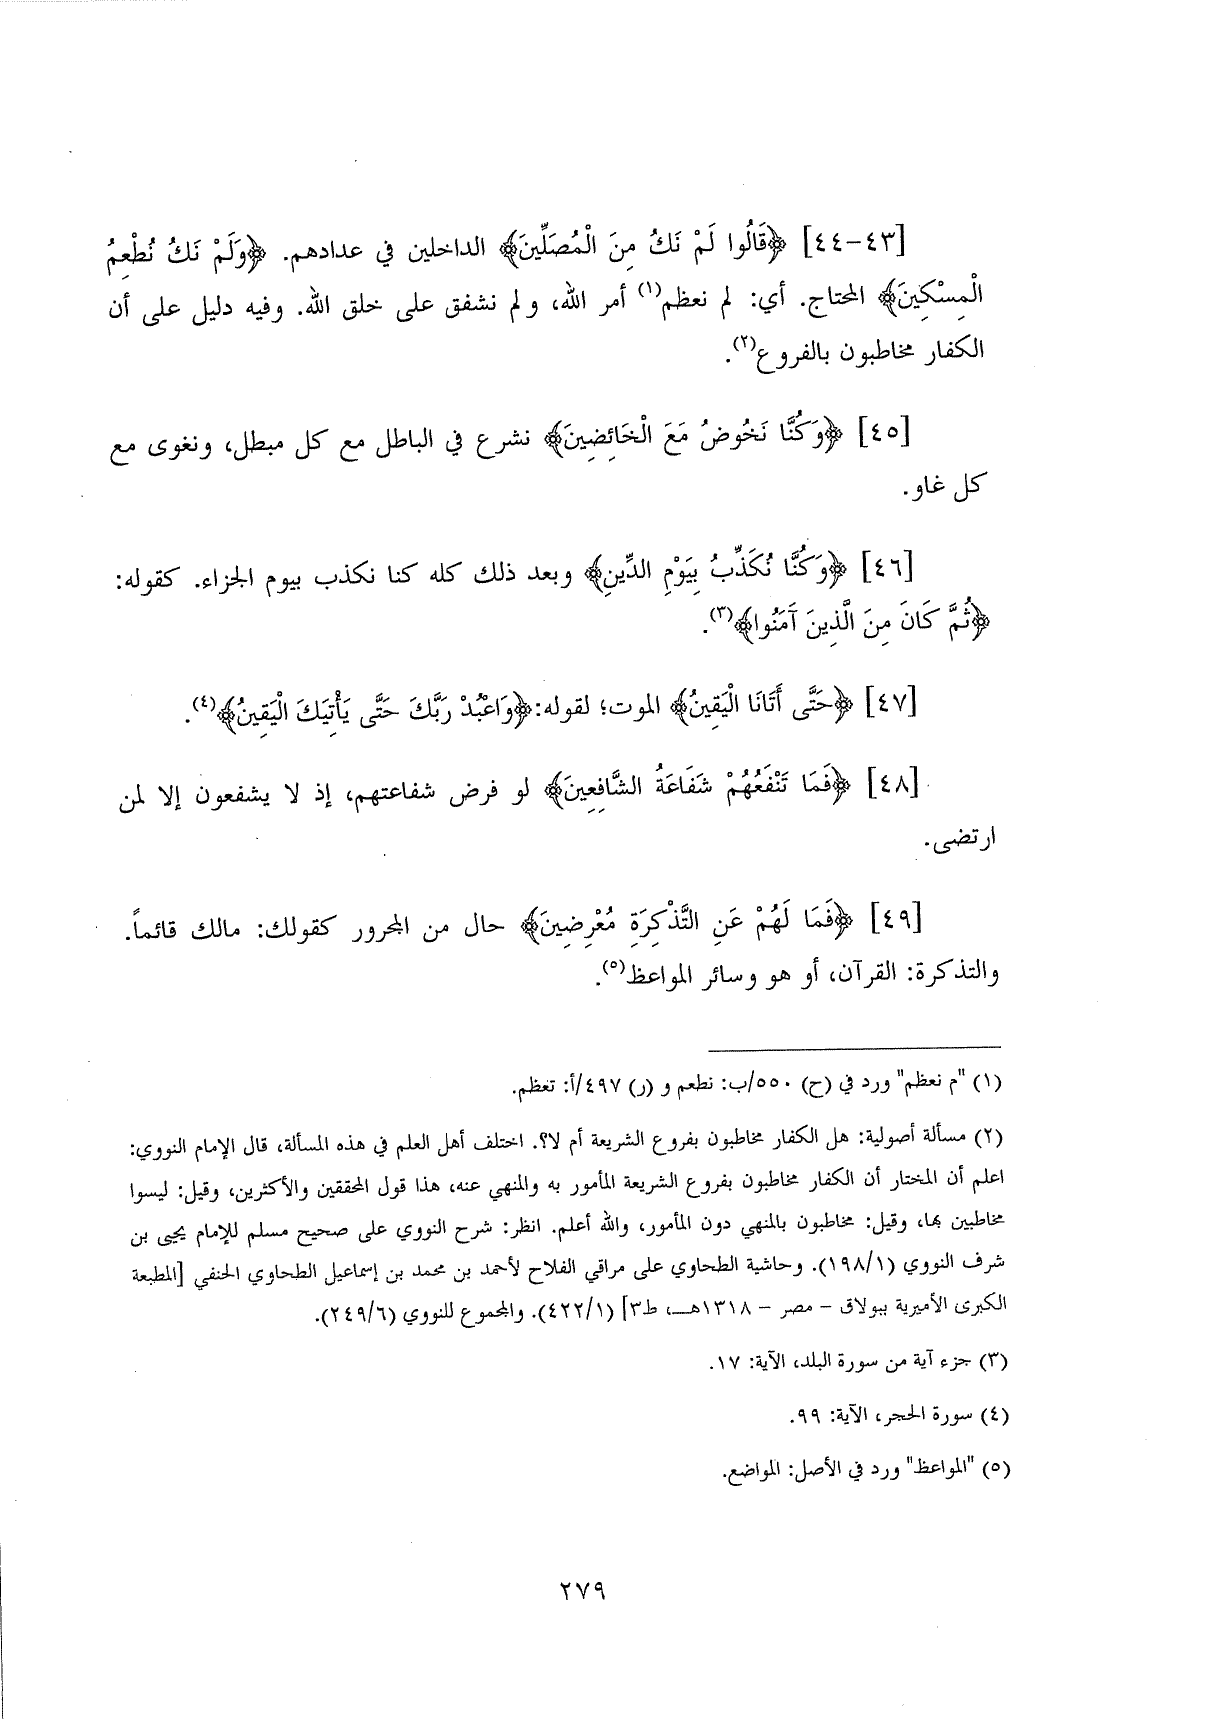 [٤٣-٤٤] ﴿قَالُوا لَمْ نَكُ مِنَ الْمُصَلِّينَ﴾ الداخلين في عدادهم. ﴿وَلَمْ نَكُ نُطْعِمُ
الْمِسْكِينَ﴾ المحتاج. أي: لم نعظم(١) أمر الله، ولم نشفق على خلق الله. وفيه دليل على أن
الكفار مخاطبون بالفروع(٢).
[٤٥] ﴿وَكُنَّا نَخُوضُ مَعَ الْخَائِضِينَ﴾ نشرع في الباطل مع كل مبطل، ونغوى مع
كل غاو.
[٤٦] ﴿وَكُنَّا نُكَذِّبُ بِيَوْمِ الدِّينِ﴾ وبعد ذلك كله كنا نكذب بيوم الجزاء. كقوله:
﴿ثُمَّ كَانَ مِنَ الَّذِينَ آَمَنُوا﴾(٣).
[٤٧] ﴿حَتَّى أَتَانَا الْيَقِينُ﴾ الموت؛ لقوله:﴿وَاعْبُدْ رَبَّكَ حَتَّى يَأْتِيَكَ الْيَقِينُ﴾(٤).
[٤٨] ﴿فَمَا تَنْفَعُهُمْ شَفَاعَةُ الشَّافِعِينَ﴾ لو فرض شفاعتهم، إذ لا يشفعون إلا لمن
ارتضى.
[٤٩] ﴿فَمَا لَهُمْ عَنِ التَّذْكِرَةِ مُعْرِضِينَ﴾ حال من المجرور كقولك: مالك قائماً.
والتذكرة: القرآن، أو هو وسائر المواعظ(٥).
(١) "م نعظم" ورد في (ح) ٥٥٠/ب: نطعم و (ر) ٤٩٧/أ: تعظم.
(٢) مسألة أصولية: هل الكفار مخاطبون بفروع الشريعة أم لا؟. اختلف أهل العلم في هذه المسألة، قال الإمام النووي:
اعلم أن المختار أن الكفار مخاطبون بفروع الشريعة المأمور به والمنهي عنه، هذا قول المحققين والأكثرين، وقيل: ليسوا
مخاطبين بها، وقيل: مخاطبون بالمنهي دون المأمور، والله أعلم. انظر: شرح النووي على صحيح مسلم للإمام يحيى بن
شرف النووي (١٩٨/١). وحاشية الطحاوي على مراقي الفلاح لأحمد بن محمد بن إسماعيل الطحاوي الحنفي [المطبعة
الكبرى الأميرية ببولاق - مصر - ١٣١٨هــ، ط٣] (٤٢٢/١). والمجموع للنووي (٢٤٩/٦).
(٣) جزء آية من سورة البلد، الآية: ١٧.
(٤) سورة الحجر، الآية: ٩٩.
(٥) "المواعظ" ورد في الأصل: المواضع.
٢٧٩